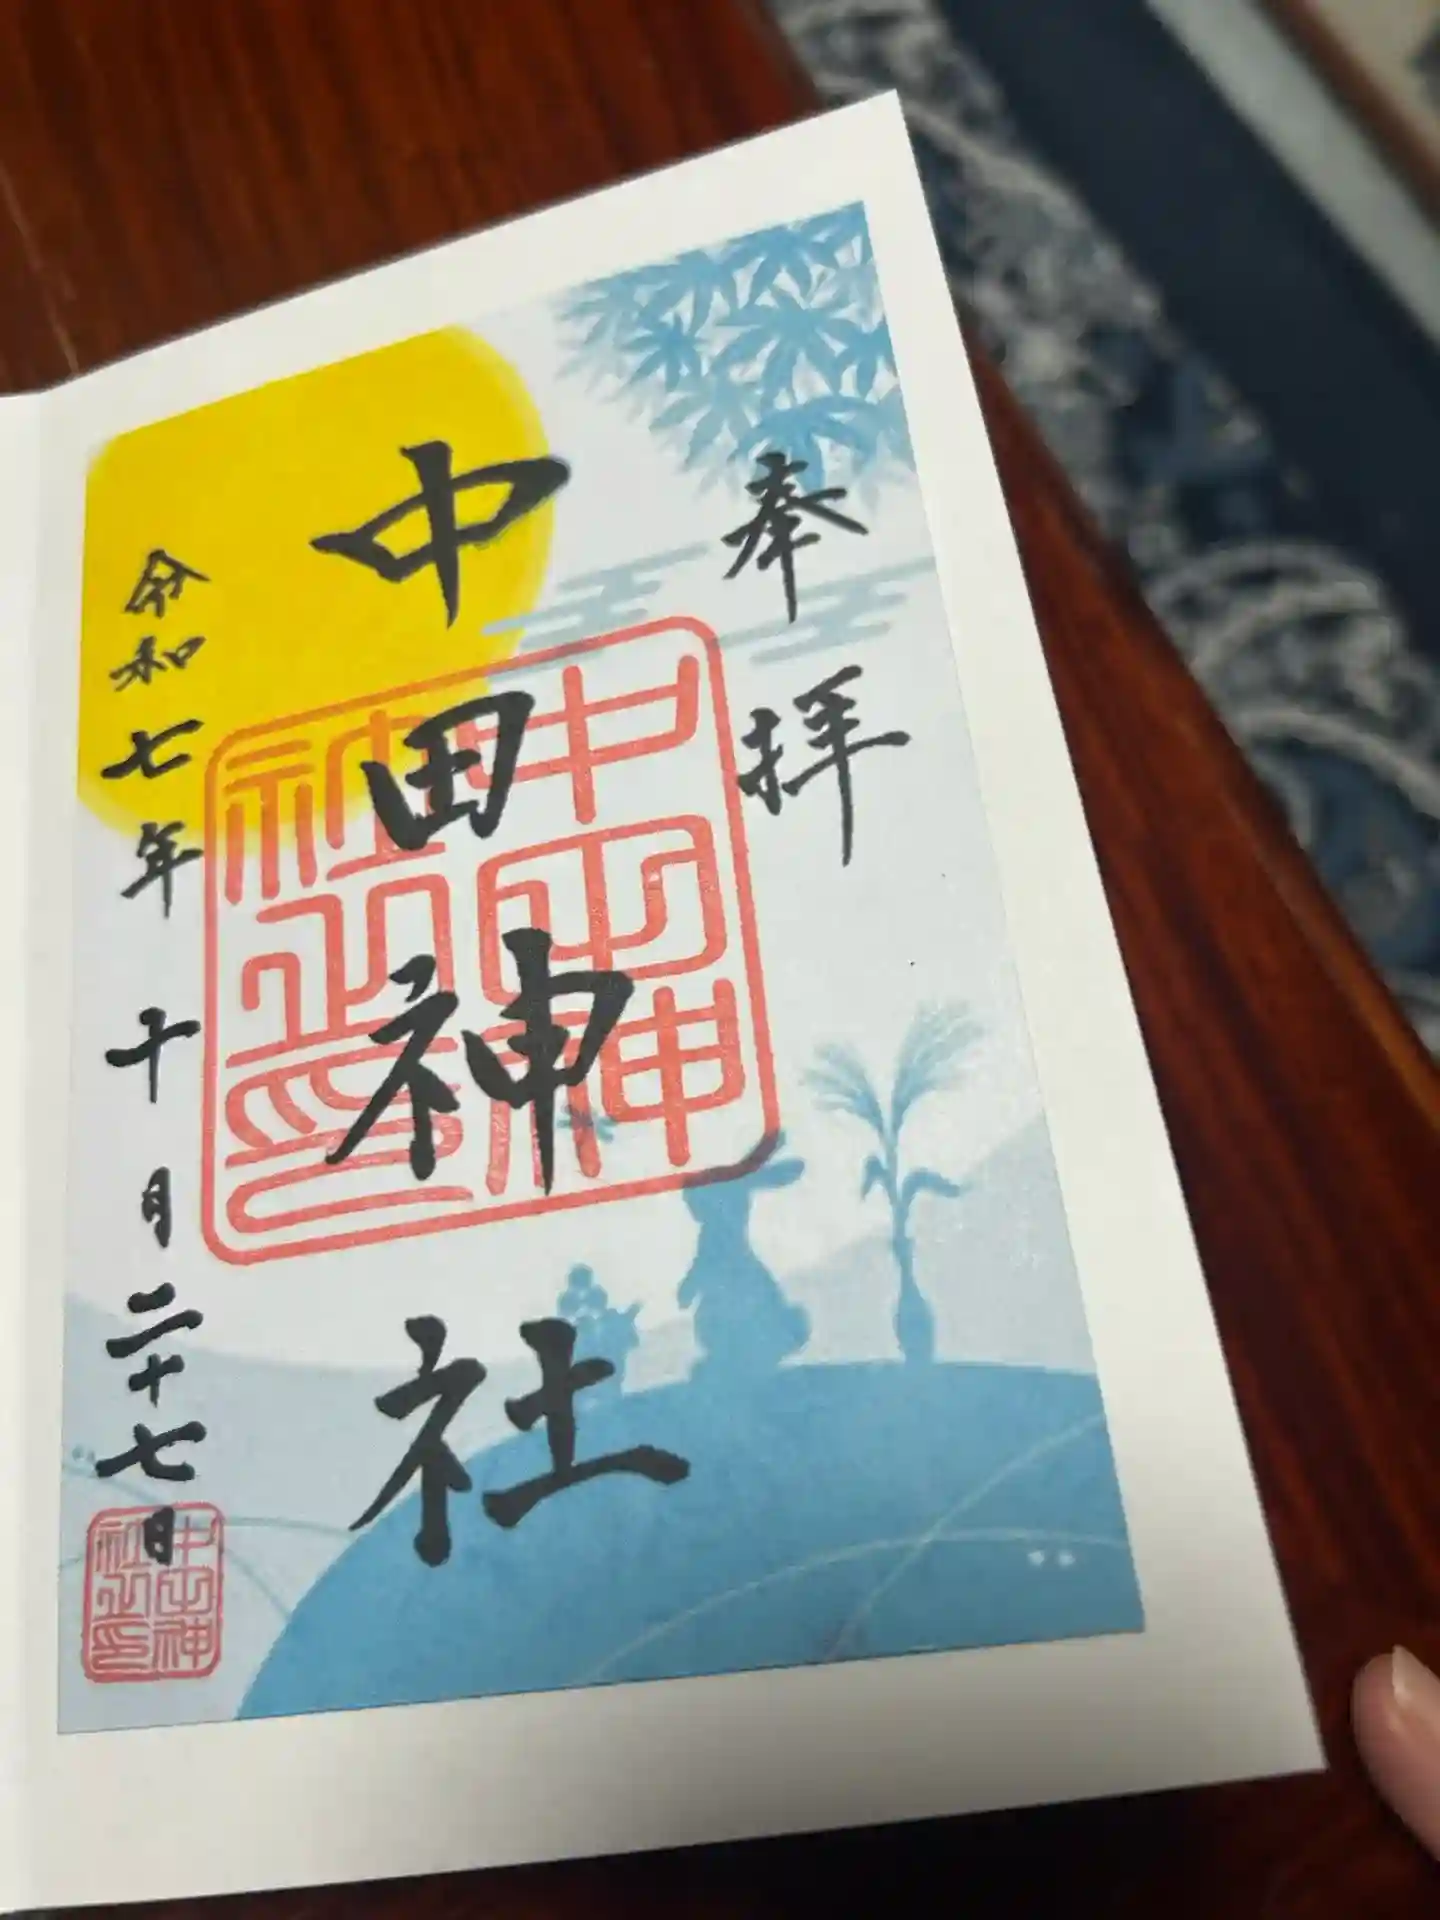 奉拝
中田神社
中田神社之印
令和七年十月二十七日
中田神社之印